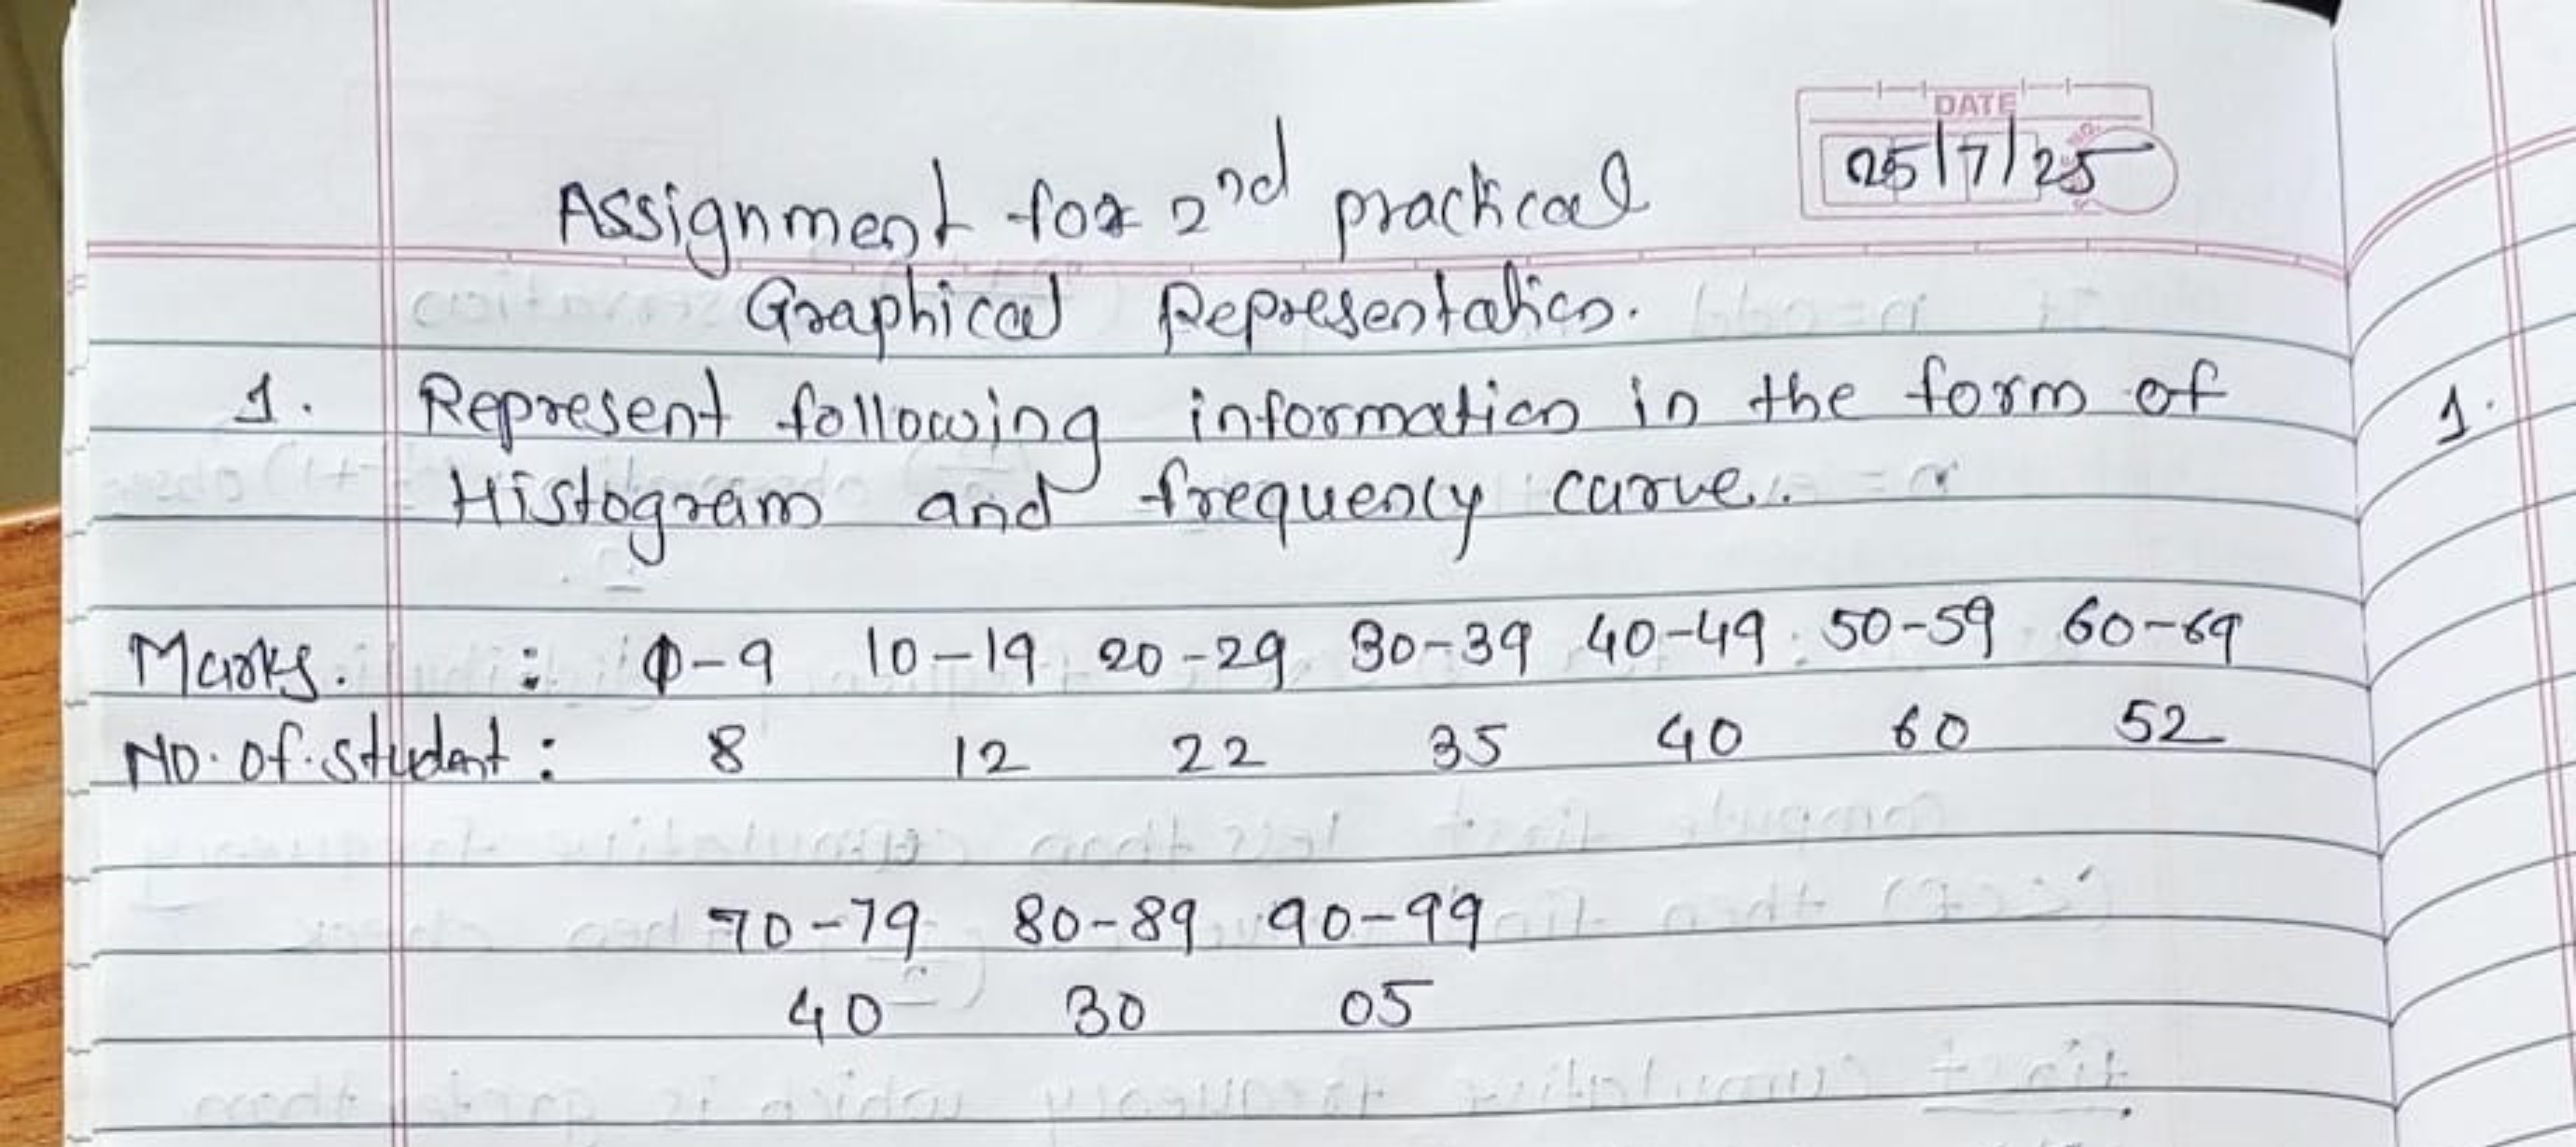 DATE
25/7/25
Assignment for 2nd practical
Graphical Representation.
1. Represent following information in the form of
Histogram and frequency curve.
Marks. : 0-9 10-19 20-29 30-39 40-49 50-59 60-69
No. of. student : 8 12 22 35 40 60 52
70-79 80-89 90-99
40 30 05
1.